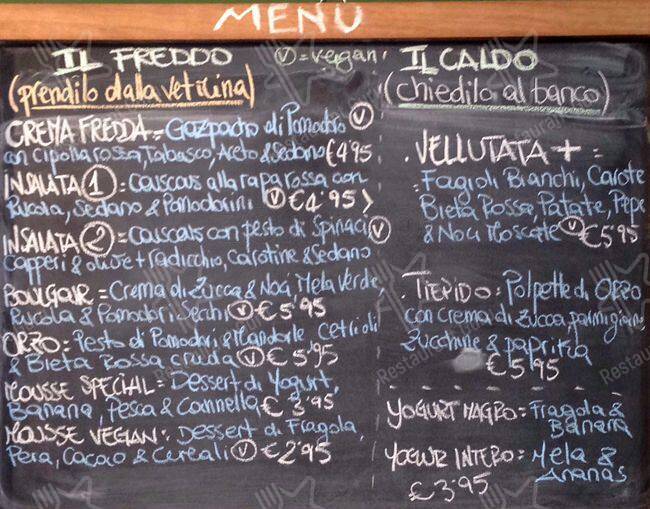 MENÙ
IL FREDDO
V = vegan
(prendilo dalla vetrina)
CREMA FREDDA = Gazpacho di Pomodoro V
con Cipolla rossa, Tabasco, Aceto & Sedano €4'95
INSALATA 1 = couscous alla rapa rossa con
Rucola, Sedano & Pomodorini V €4'95
INSALATA 2 = Couscous con pesto di Spinaci V
Capperi & olive + radicchio, Carotine & Sedano
BOULGOUR = Crema di Zucca & Noci Mela Verde,
Rucola & Pomodori Secchi V €5'95
ORZO: Pesto di Pomodori & Mandorle cetrioli
& Bieta Rossa cruda V €5'95
MOUSSE SPECIAL = Dessert di Yogurt,
Banana, Pesca & Cannella €3'95
MOUSSE VEGAN: Dessert di Fragola,
Pera, Cacao & Cereali V €2'95
IL CALDO
(chiedilo al banco)
VELLUTATA + =
Fagioli Bianchi, Carote
Bieta Rossa, Patate, Pepe
& Noci Moscate V €5'95
TIEPIDO: Polpette di Orzo
con crema di Zucca, parmigiano
Zucchine & paprika
€5'95
YOGURT MAGRO: Fragola &
Banana
YOGUR INTERO: Mela &
Ananas
€3'95